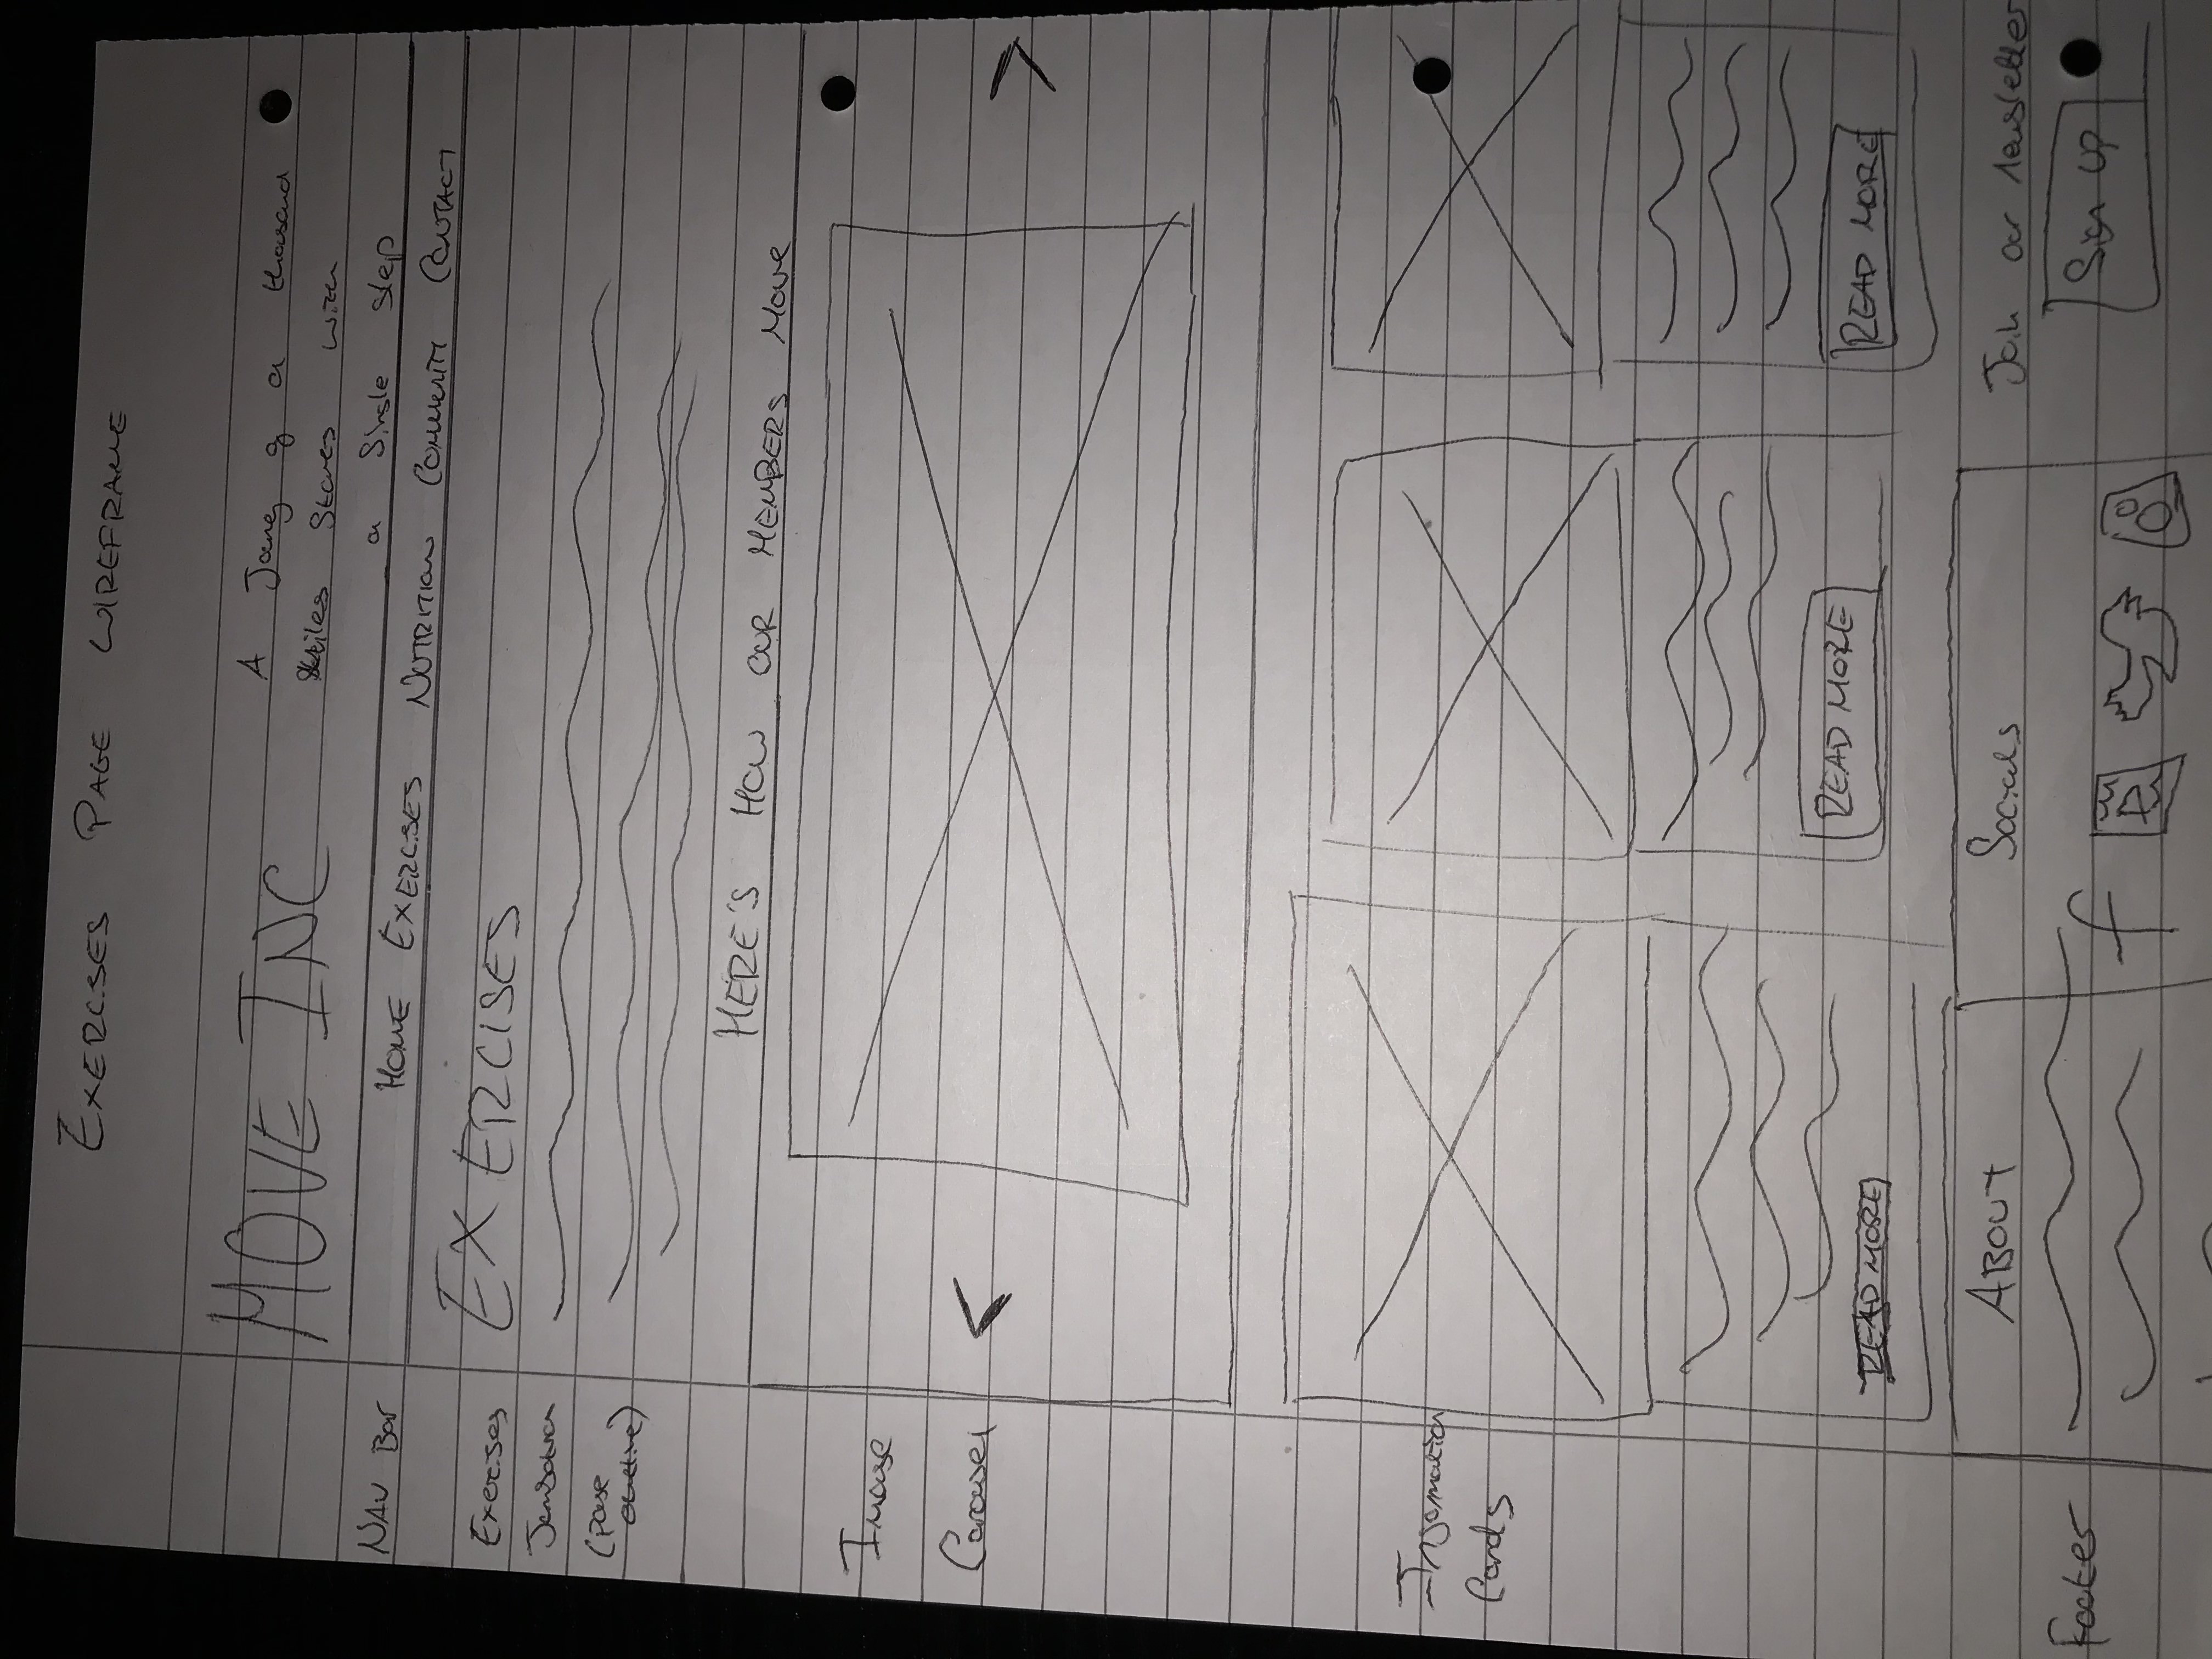 EXERCISES PAGE WIREFRAME
MOVE INC
A Journey of a thousand
miles starts with
a single step
NAV Bar
HOME EXERCISES NUTRITION COMMUNITY CONTACT
Exercises
EXERCISES
(page
HERE'S HOW OUR MEMBERS MOVE
Image
Carousel
<
>
Information
Cards
READ MORE
READ MORE
READ MORE
ABOUT
Socials
Join our newsletter
Footer
f
Sign up